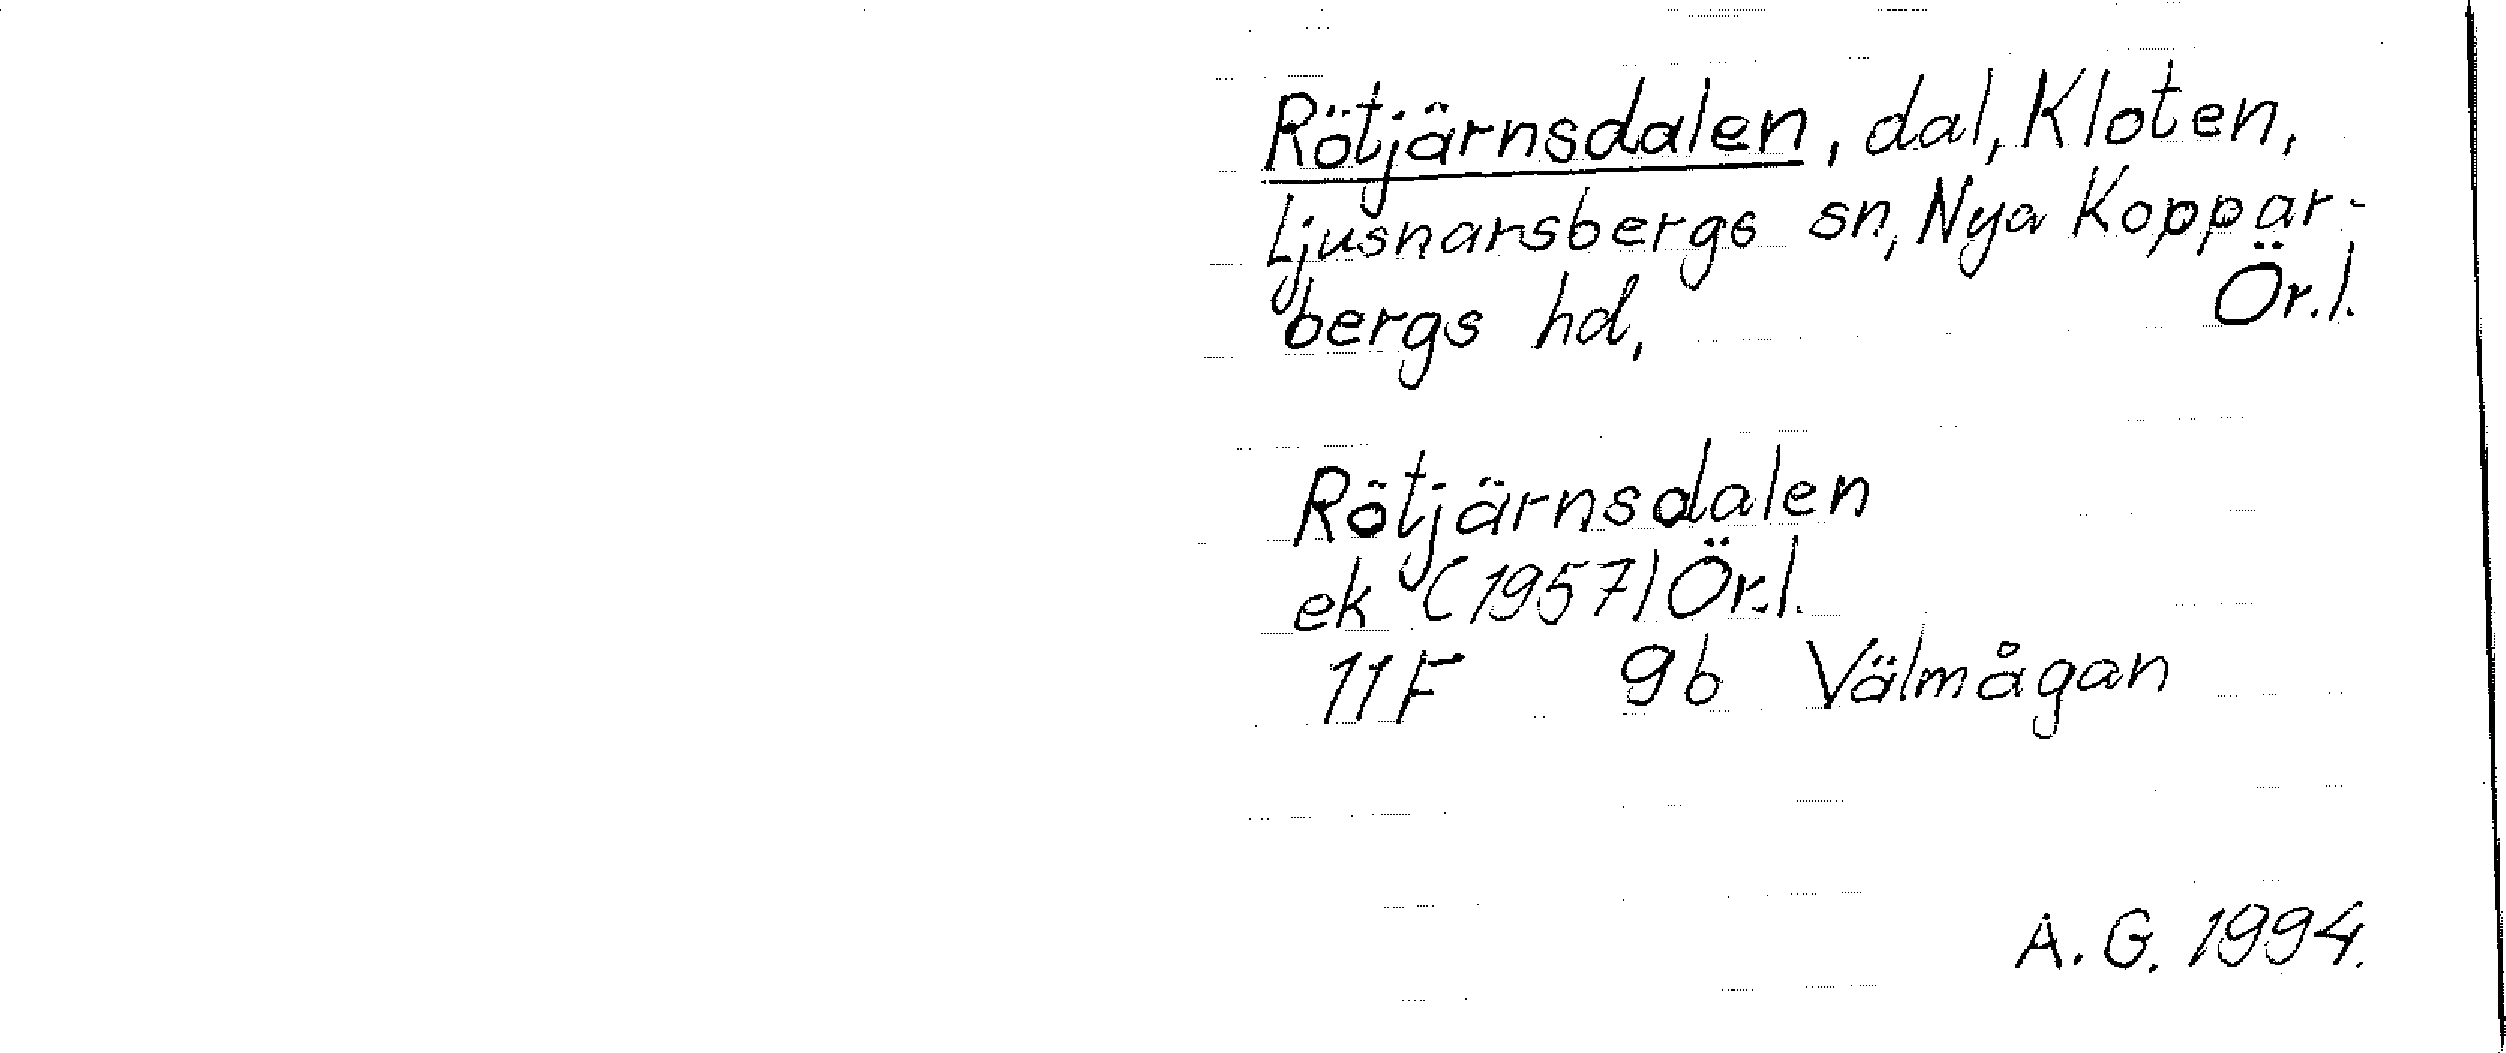 Rötjärnsdalen, dal, Kloten,
Ljusnarsbergs sn, Nya Koppar-
bergs hd, Ör.l.
Rötjärnsdalen
ek (1957) Ör.l.
11F 9b Välmågan
A. G. 1994.